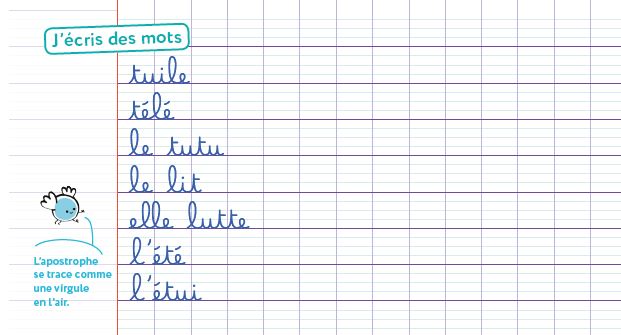 J'écris des mots
tuile
télé
le tutu
le lit
elle lutte
l'été
l'étui
L'apostrophe
se trace comme
une virgule
en l'air.